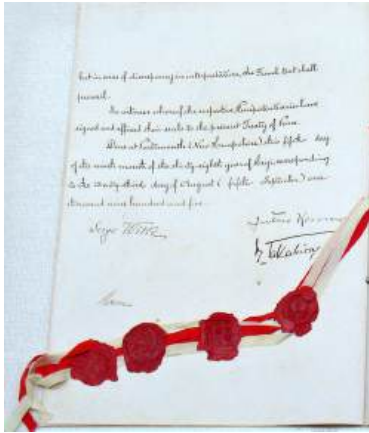 but in case of discrepancy in interpretation, the French text shall
prevail.
In witness whereof the respective Plenipotentiaries have
signed and affixed their seals to the present Treaty of Peace.
Done at Portsmouth (New Hampshire) this fifth day
of the ninth month of the thirty-eighth year of Meiji corresponding
to the twenty-third day of August (fifth September) one
thousand nine hundred and five.
Serge Witte
Jutaro Komura
Takahira
Rosen